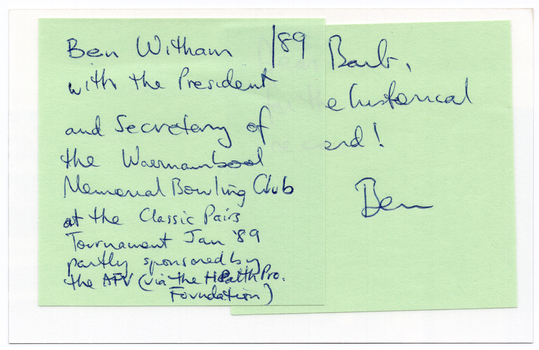 Ben Witham
with the President
and Secretary of
the Waernambool
Memorial Bowling Club
at the Classic Pairs
Tournament Jan '89
partly sponsored by
the AFV (via the Health Pro.
Foundation)
/89
Barb,
e historical
ord!
Ben